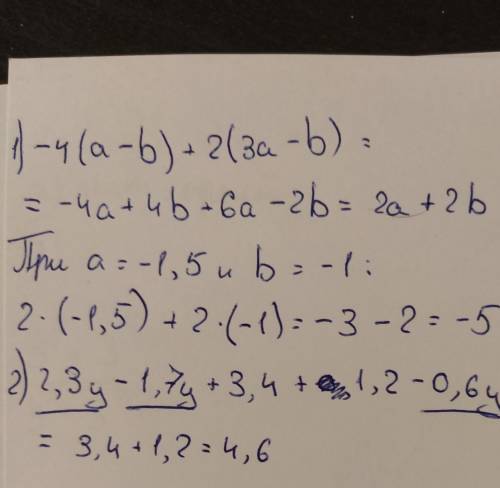 1) -4(a-b)+2(3a-b) =
= -4a+4b+6a-2b = 2a+2b
При a = -1,5 и b = -1:
2·(-1,5) + 2·(-1) = -3 - 2 = -5
2) 2,3y - 1,7y + 3,4 + 1,2 - 0,6y
= 3,4 + 1,2 = 4,6